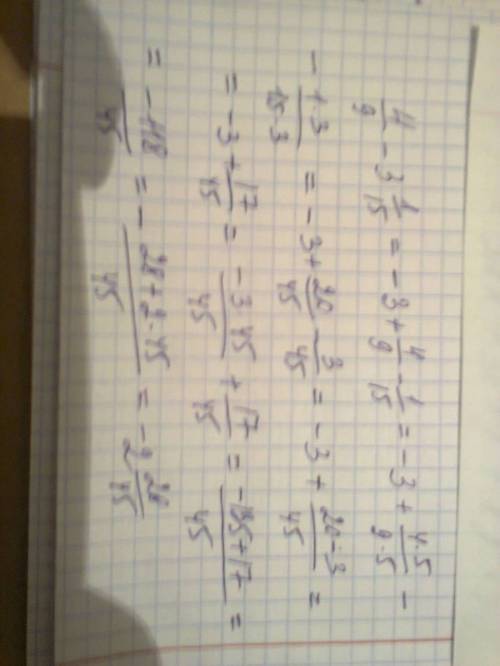 4/9 - 3 1/15 = -3 + 4/9 - 1/15 = -3 + 4·5/9·5 -
- 1·3/15·3 = -3 + 20/45 - 3/45 = -3 + 20-3/45 =
= -3 + 17/45 = -3·45/45 + 17/45 = -135+17/45 =
= -118/45 = - 28+2·45/45 = -2 28/45